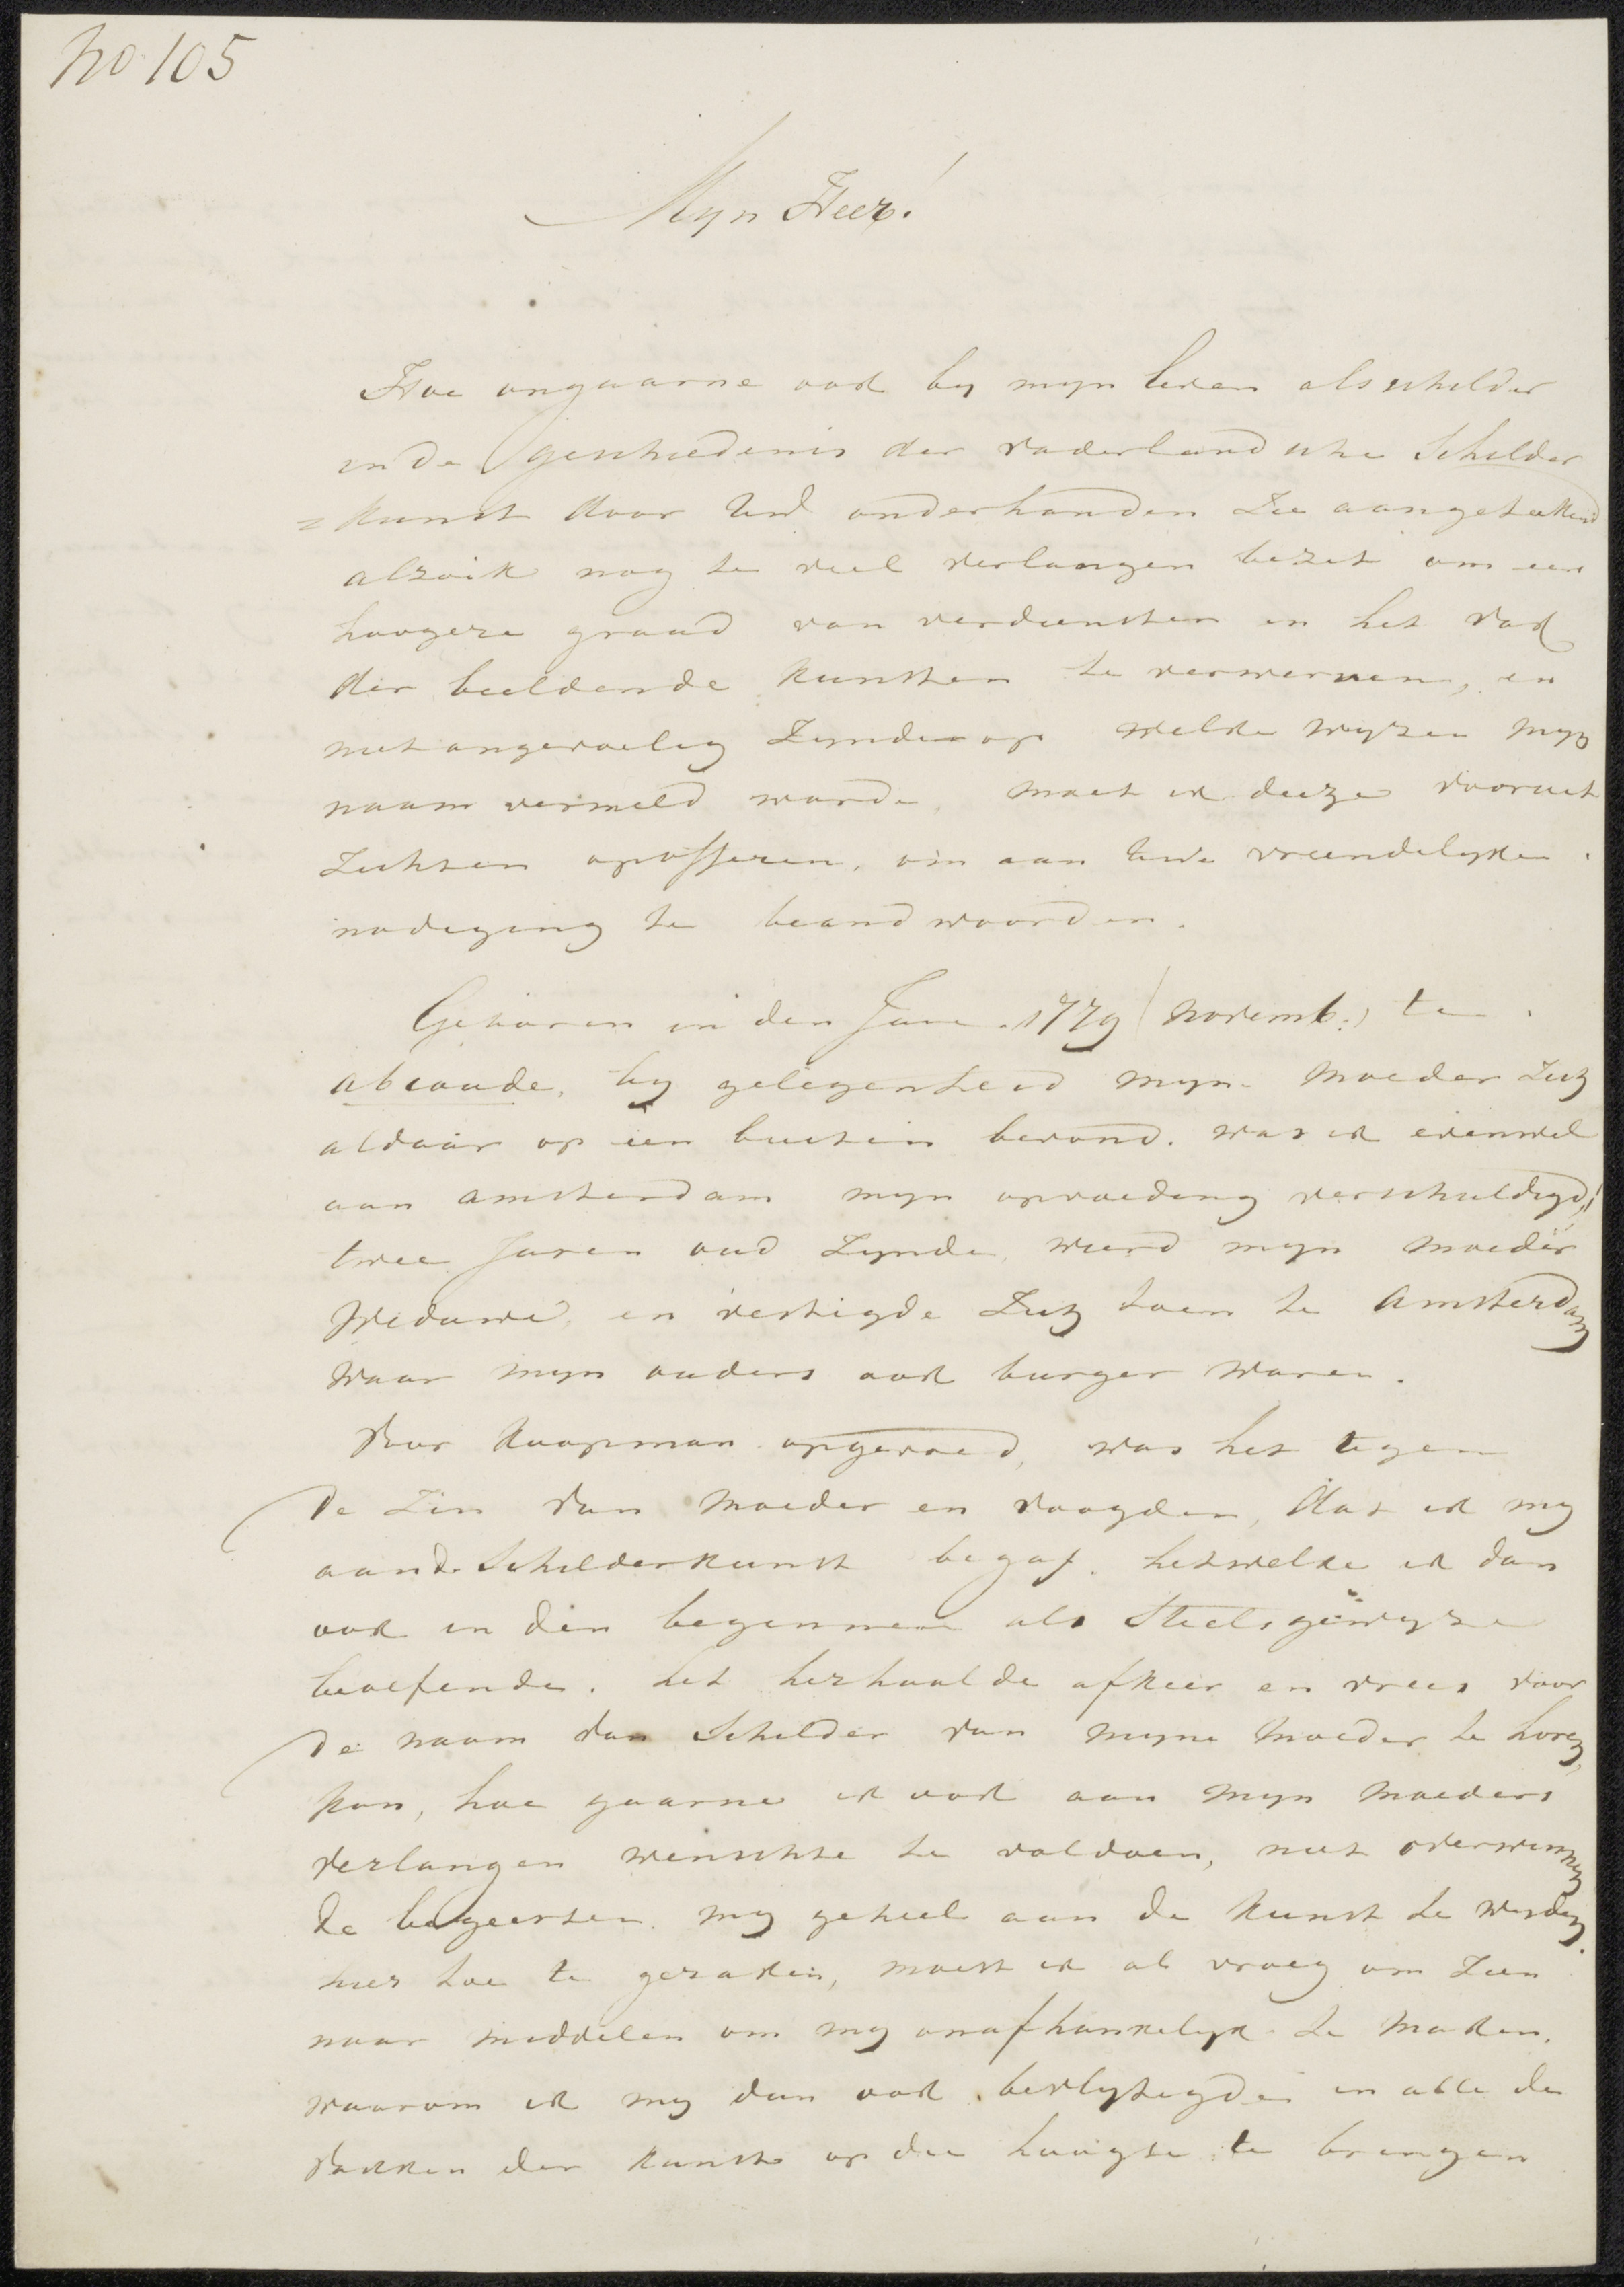 No 105
Myn Heer!
Hoe ongaarne ook by myn leven als schilder
in de geschiedenis der vaderlandsche Schilder
= kunst door Uwd onderhanden zie aangeteekend
alzoik nog te veel verlangen bezit om een
hoogere graad van verdiensten in het vak
der beeldende kunsten te verwerven, en
niet ongevoelig zynde op welke wyze myn
naam vermeld worde. moet ik deeze vooruit
zichten opofferen, om aan Uwe vriendelyke
nodiging te beandwoorden.
Geboren in den Jare 1779 (novemb:) te
abcoude, by gelegenheid myne moeder zig
aldaar op een buiten bevond. was ik evenwel
aan amsterdam myn opvoeding verschuldigd,
twee Jaren oud zynde, wierd myn moeder
Weduwe, en vestigde zig toen te Amsterdam
waar myn ouders ook burger waren.
Voor koopman opgevoed, was het tegen
de zin van moeder en voogden, dat ik my
aand Schilderkunst begaf. hetwelke ik dan
ook in den beginnen als Steelsgewyze
beoefende. het herhaalde afkeer en vrees voor
de naam van Schilder van myne moeder te horen,
kon, hoe gaarne ik ook aan myn moeders
verlangen wenschte te voldoen, niet overwinnen
de begeerten my geheel aan de kunst te wyden.
hier toe te geraken, moest ik al vroeg om zien
naar middelen om my onafhankelyk te maken.
waarom ik my dan ook bevlytigde in alle de
vakken der kunst op die hoogte te brengen